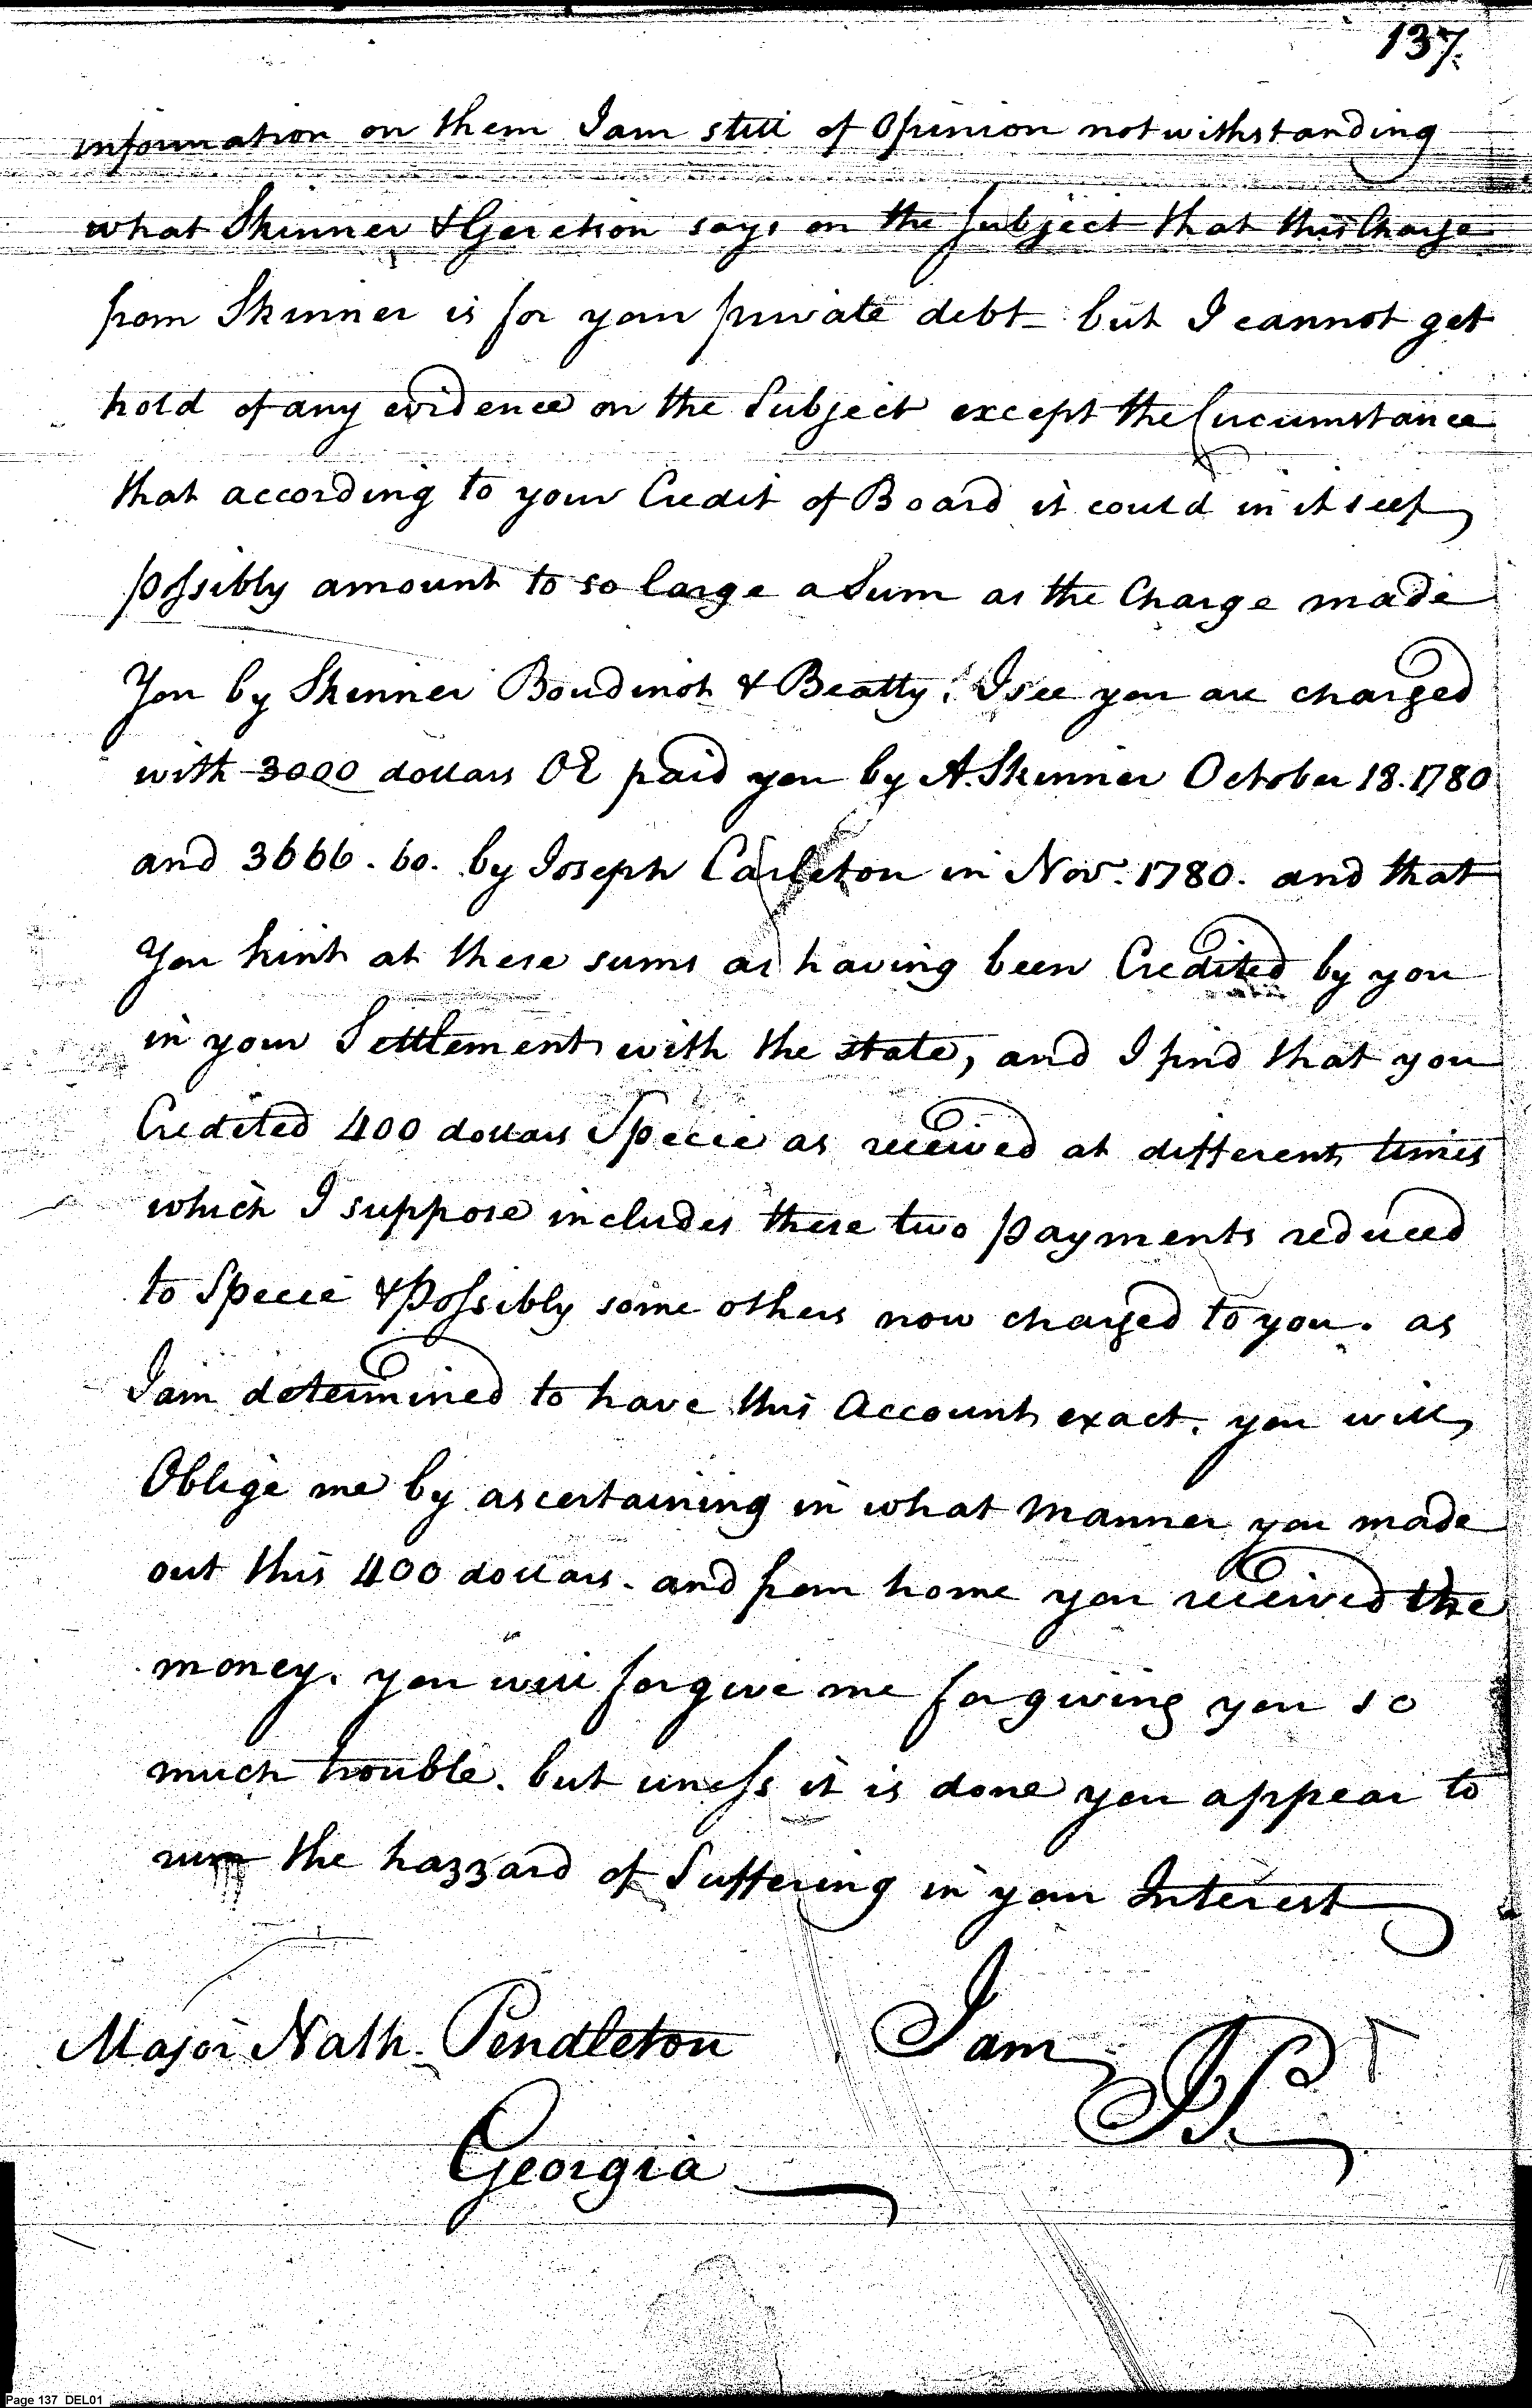 137.
information on them I am still of Opinion notwithstanding
what Skinner & Geretson says on the Subject that this Charge
from Skinner is for your private debt - but I cannot get
hold of any evidence on the Subject except the Circumstance
that according to your Credit of Board it could in itself
possibly amount to so large a Sum as the Charge made
You by Skinner Boudinot & Beatty. I see you are charged
with 3000 dollars OE paid you by A. Skinner October 18. 1780
and 3666. 60. by Joseph Carleton in Nov. 1780. and that
You hint at these sums as having been Credited by you
in your Settlement with the state, and I find that you
Credited 400 dollars Specie as received at different times
which I suppose includes these two payments reduced
to Specie & possibly some others now charged to you. as
I am determined to have this Account exact. you will
Oblige me by ascertaining in what manner you made
out this 400 dollars. and from home you received the
money. you will forgive me for giving you so
much trouble. but uness it is done you appear to
run the hazzard of Suffering in your Interest
Major Nath. Pendleton I am
JP
Georgia
Page 137 DEL01